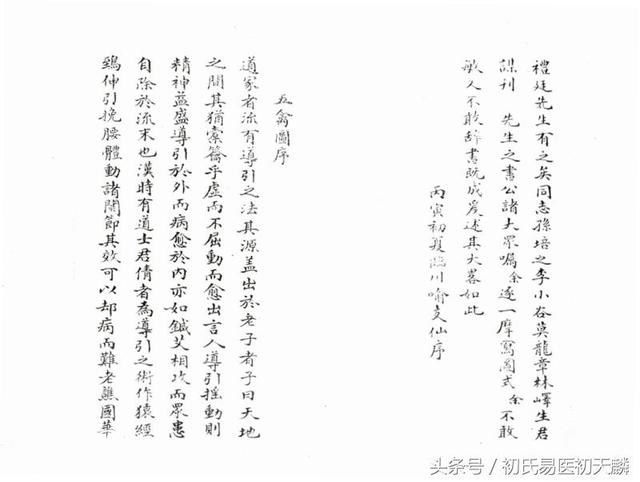 禮廷先生有之矣同志孫培之李小谷莫龍章林嶧生君
謀刊　先生之書公諸大眾囑余逐一摩寫圖式余不敢
敏人不敢辞書既成爰述其大畧如此
丙寅初夏臨川喻支仙序
五禽圖序
道家者流有導引之法其源盖出於老子老子曰天地
之間其猶槖籥乎虛而不屈動而愈出言人導引揺動則
精神益盛導引於外而病愈於內亦如鍼艾相攻而眾患
自除於流末也漢時有道士君倩者為導引之術作猿經
鵄伸引挽腰體動諸関節其效可以却病而難老蕉國華
头条号／初氏易医初天麟